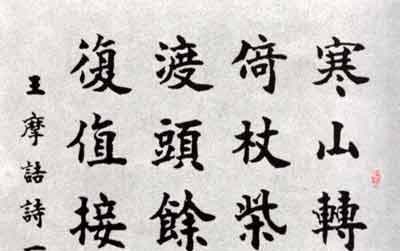 寒山轉
倚杖柴
渡頭餘
復值接
王摩詰詩一